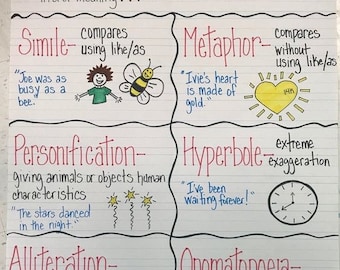 Simile- compares
using like/as
"Joe was as
busy as a
bee."
Metaphor- compares
without
using like/as
"Ivie's heart
is made of
gold."
Personification-
giving animals or objects human
characteristics
"The stars danced
in the night."
Hyperbole- extreme
exaggeration
"I've been
waiting forever!"
Alliteration-
Onomatopoeia-